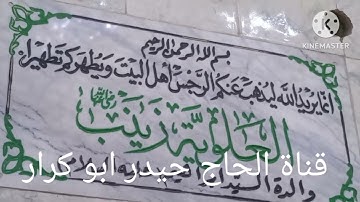 KINEMASTER
بسم الله الرحمن الرحيم
انما يريد الله ليذهب عنكم الرجس أهل البيت ويطهركم تطهيرا
العلوية زينب
قناة الحاج حيدر ابو كرار
والدة السيد